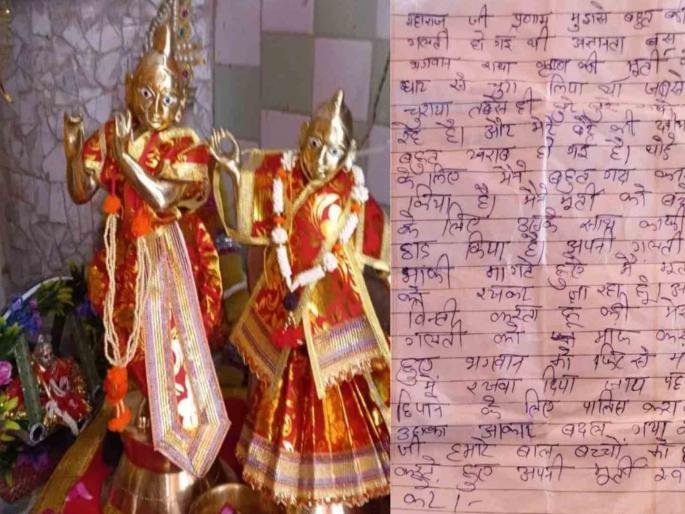 महाराज जी प्रणाम मुझसे बहुत बड़ी
गलती हो गई थी अज्ञानता बस
भगवान राधा कृष्ण की मूर्ती
से चुरा लिया था जबसे
चुराया तबसे ही बुरे
रहे है। और मेरे बेटे की
बहुत खराब हो गई है। थोड़े
के लिए मैंने बहुत गंदा काम
किया है। मैंने मूर्ती को बेचने
के लिए उसके साथ काफी
छाड़ किया है अपनी गलती
माफी मांगते हुए मै मूर्ती
को रखकर जा रहा हूं।
विनती करता हूं की मेरी
गलती को माफ करते
हुए भगवान को फिर से
में रखवा दिया जाय
के लिए पालिस करा
उसका आकार बदल गया
जी हमारे बाल बच्चो को
करते हुए अपनी मूर्ती
करे।-